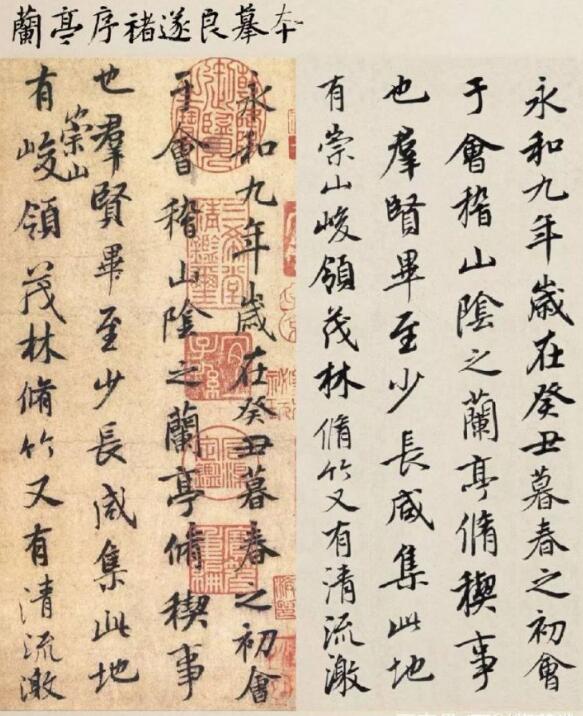 蘭亭序褚遂良摹本
永和九年歲在癸丑暮春之初會
于會稽山陰之蘭亭脩稧事
也羣賢畢至少長咸集此地
有崇山峻領茂林脩竹又有清流激
永和九年歲在癸丑暮春之初會
于會稽山陰之蘭亭脩稧事
也羣賢畢至少長咸集此地
有崇山峻領茂林脩竹又有清流激
三希堂精鑑璽
宜子孫